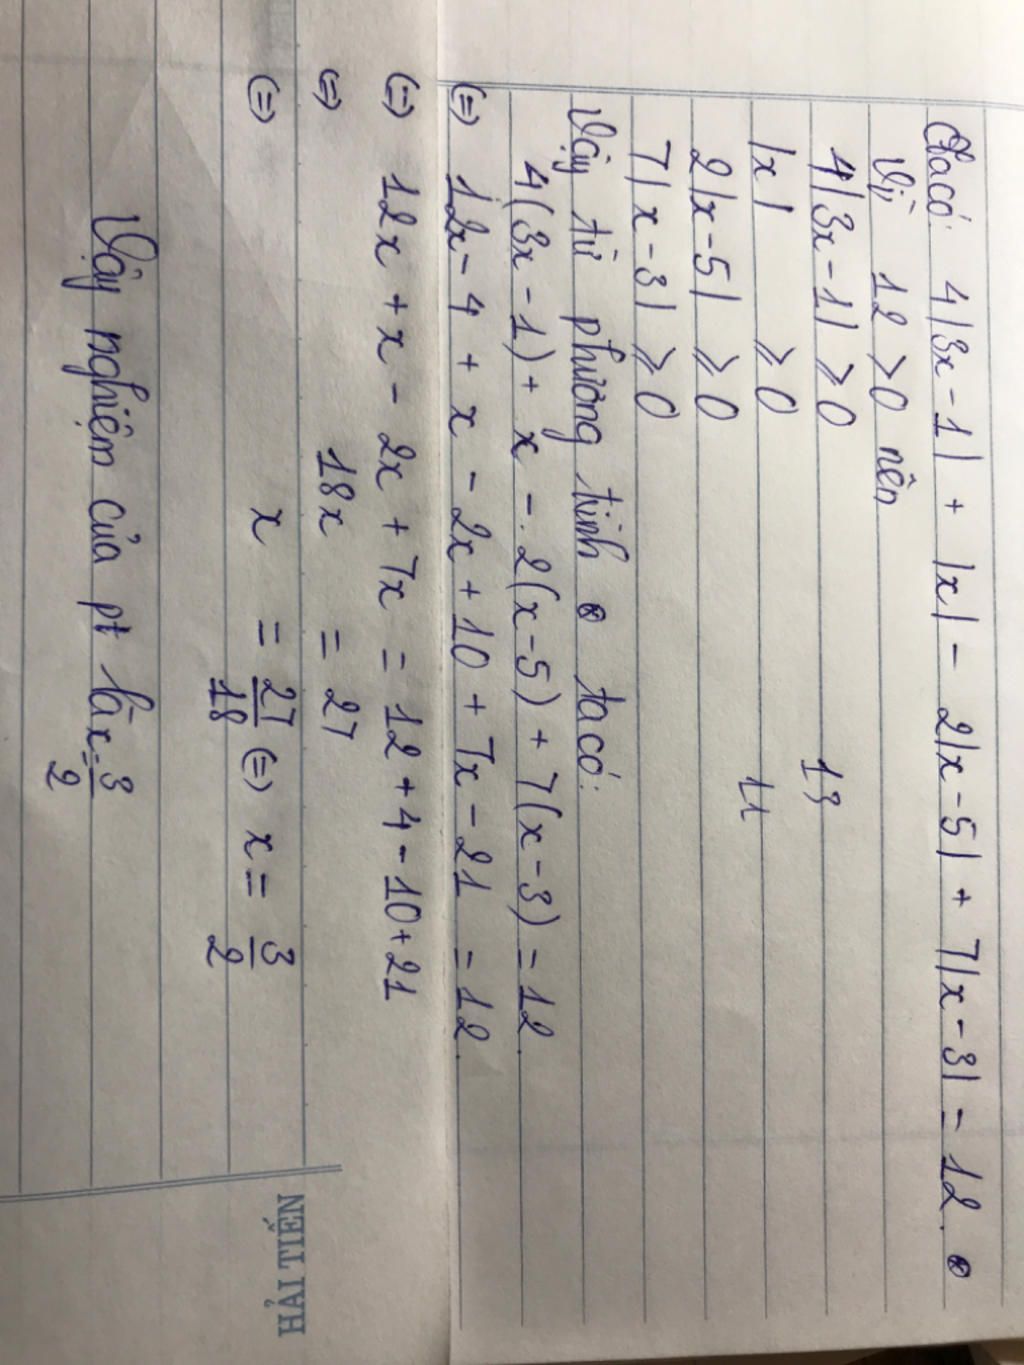 Ta có: 4|3x-1| + |x| - 2|x-5| + 7|x-3| = 12.
Vì 12 > 0 nên
4|3x-1| ⩾ 0 13
|x| ⩾ 0 11
2|x-5| ⩾ 0
7|x-3| ⩾ 0
Vậy từ phương tình ta có:
4(3x-1) + x - 2(x-5) + 7(x-3) = 12.
(=) 12x - 4 + x - 2x + 10 + 7x - 21 = 12.
(=) 12x + x - 2x + 7x = 12 + 4 - 10 + 21
(=) 18x = 27
(=) x = 27/18 (=) x = 3/2
Vậy nghiệm của pt là x = 3/2
HẢI TIẾN